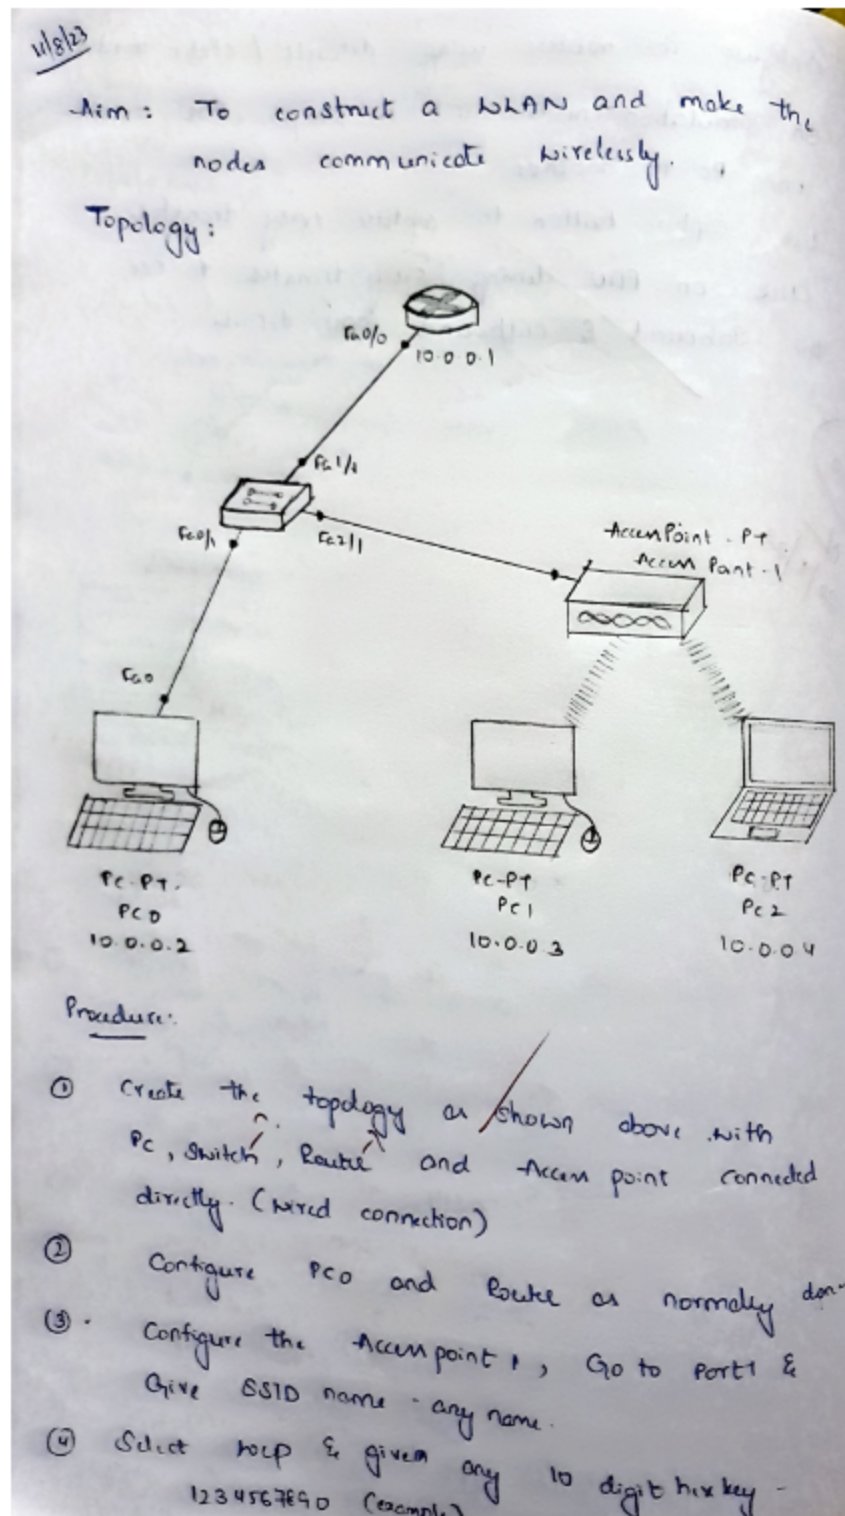 11/8/23
Aim: To construct a WLAN and make the
nodes communicate wirelessly.
Topology:
Fa0/0
10.0.0.1
Fa1/1
Fa0/1
Fa2/1
AccessPoint-PT
Access Point-1
Fa0
PC-PT
PC0
10.0.0.2
PC-PT
PC1
10.0.0.3
PC-PT
PC2
10.0.0.4
Procedure:
① Create the topology as shown above with
PC, Switch, Router and Access point connected
directly. (wired connection)
② Configure PC0 and Router as normally done
③. Configure the Accesspoint 1, Go to Port1 &
Give SSID name - any name.
④ Select WEP & given any 10 digit hex key -
1234567890 (example)